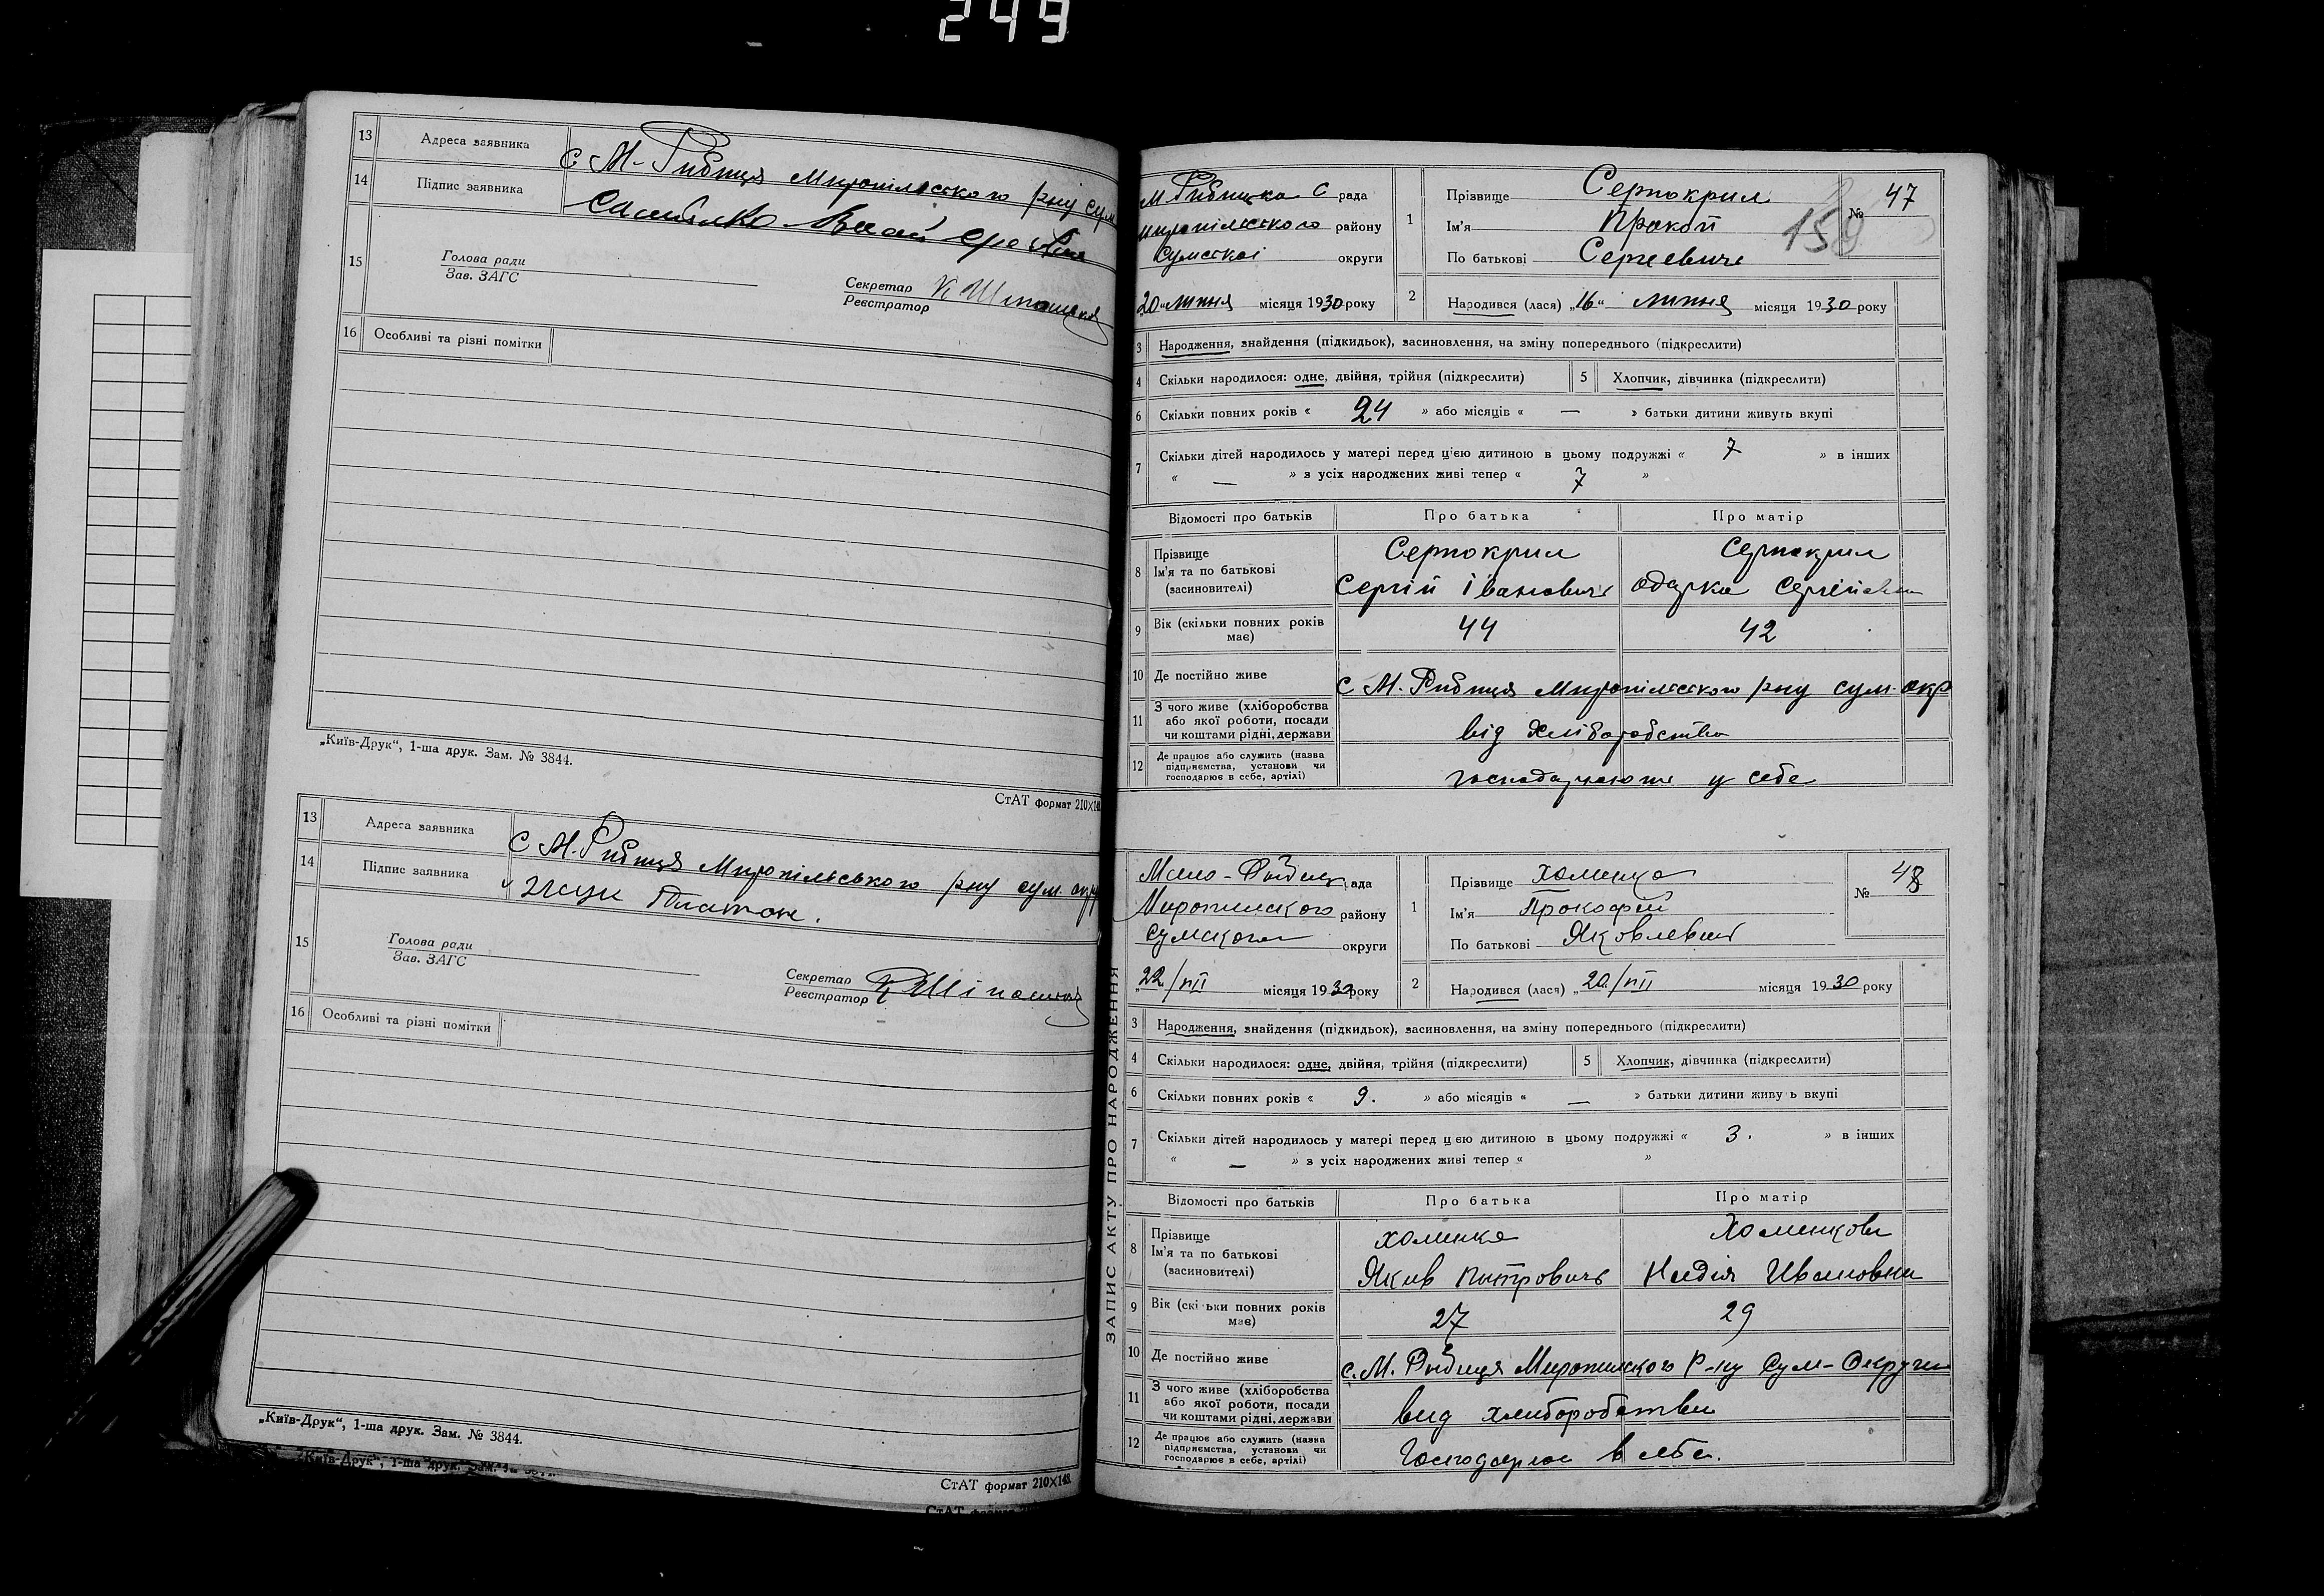 249
13 Адреса заявника с М-Рибиця Миропільського р-ну сум
14 Підпис заявника
15 Голова ради
Зав. ЗАГС
Секретар К
Реєстратор
16 Особливі та різні помітки
„Київ-Друк“, 1-ша друк. Зам. № 3844.
СтАТ формат 210×148.
13 Адреса заявника с М-Рибиця Миропільського р-ну сум. окр
14 Підпис заявника Платон.
15 Голова ради
Зав. ЗАГС
Секретар
Реєстратор
16 Особливі та різні помітки
„Київ-Друк“, 1-ша друк. Зам. № 3844.
СтАТ формат 210×148.
М Рибицька С рада
миропільского району
Сумскої округи
20 липня місяця 1930 року
1 Прізвище Серпокрил
Ім'я Прокоп
По батькові Сергеевичь
№ 47
159
2 Народився (лася) „16“ липня місяця 1930 року
3 Народження, знайдення (підкидьок), засиновлення, на зміну попереднього (підкреслити)
4 Скільки народилося: одне, двійня, трійня (підкреслити) 5 Хлопчик, дівчинка (підкреслити)
6 Скільки повних років « 24 » або місяців « — » батьки дитини живуть вкупі
7 Скільки дітей народилось у матері перед цією дитиною в цьому подружжі « 7 » в інших
« — » з усіх народжених живі тепер « 7 »
Відомості про батьків Про батька Про матір
8 Прізвище Серпокрил Серпокрил
Ім'я та по батькові
(засиновителі) Сергій Івановичь Одарка Сергіївна
9 Вік (скільки повних років має) 44 42
10 Де постійно живе с М. Рибиця Миропільского р-ну сум. окр
11 З чого живе (хліборобства
або якої роботи, посади
чи коштами рідні, держави від Хліборобства
12 Де працює або служить (назва
підприємства, установи чи
господарює в себе, артілі) господарюють у себе
ЗАПИС АКТУ ПРО НАРОДЖЕННЯ
Мало-Рыбиц рада
Миропилского району
Сумского округи
22/VII місяця 1930 року
1 Прізвище Хоменко
Ім'я Прокофий
По батькові Яковлевич
№ 48
2 Народився (лася) „20/VII місяця 1930 року
3 Народження, знайдення (підкидьок), засиновлення, на зміну попереднього (підкреслити)
4 Скільки народилося: одне, двійня, трійня (підкреслити) 5 Хлопчик, дівчинка (підкреслити)
6 Скільки повних років « 9. » або місяців « — » батьки дитини живуть вкупі
7 Скільки дітей народилось у матері перед цією дитиною в цьому подружжі « 3. » в інших
« — » з усіх народжених живі тепер « »
Відомості про батьків Про батька Про матір
8 Прізвище Хоменко Хоменкова
Ім'я та по батькові
(засиновителі) Якив Питровичь Надія Ивановна
9 Вік (скільки повних років має) 27 29
10 Де постійно живе с. М. Рыбиця Миропилского Р-ну Сум-Округи
11 З чого живе (хліборобства
або якої роботи, посади
чи коштами рідні, держави вид хлиборобства
12 Де працює або служить (назва
підприємства, установи чи
господарює в себе, артілі) Господарює в себе.